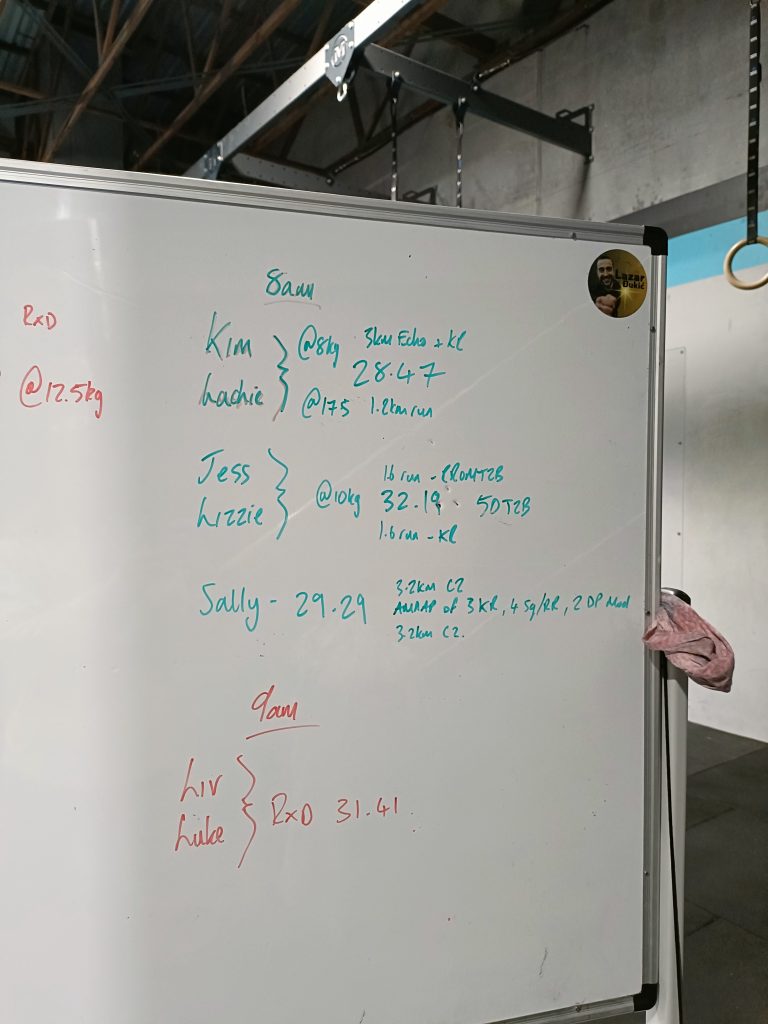 8am
RxD
@12.5kg
Kim @8kg 3km Echo + KR
28.47
Lachie @175 1.2km run
Jess 1.6 run - RROMT2B
@10kg 32.19 50T2B
Lizzie 1.6 run - KR
3.2km C2
Sally - 29.29 AMRAP of 3 KR, 4 Sq/RR, 2 DP Mod
3.2km C2.
9am
Liv
RxD 31.41
Luke
Lazar
Dukić